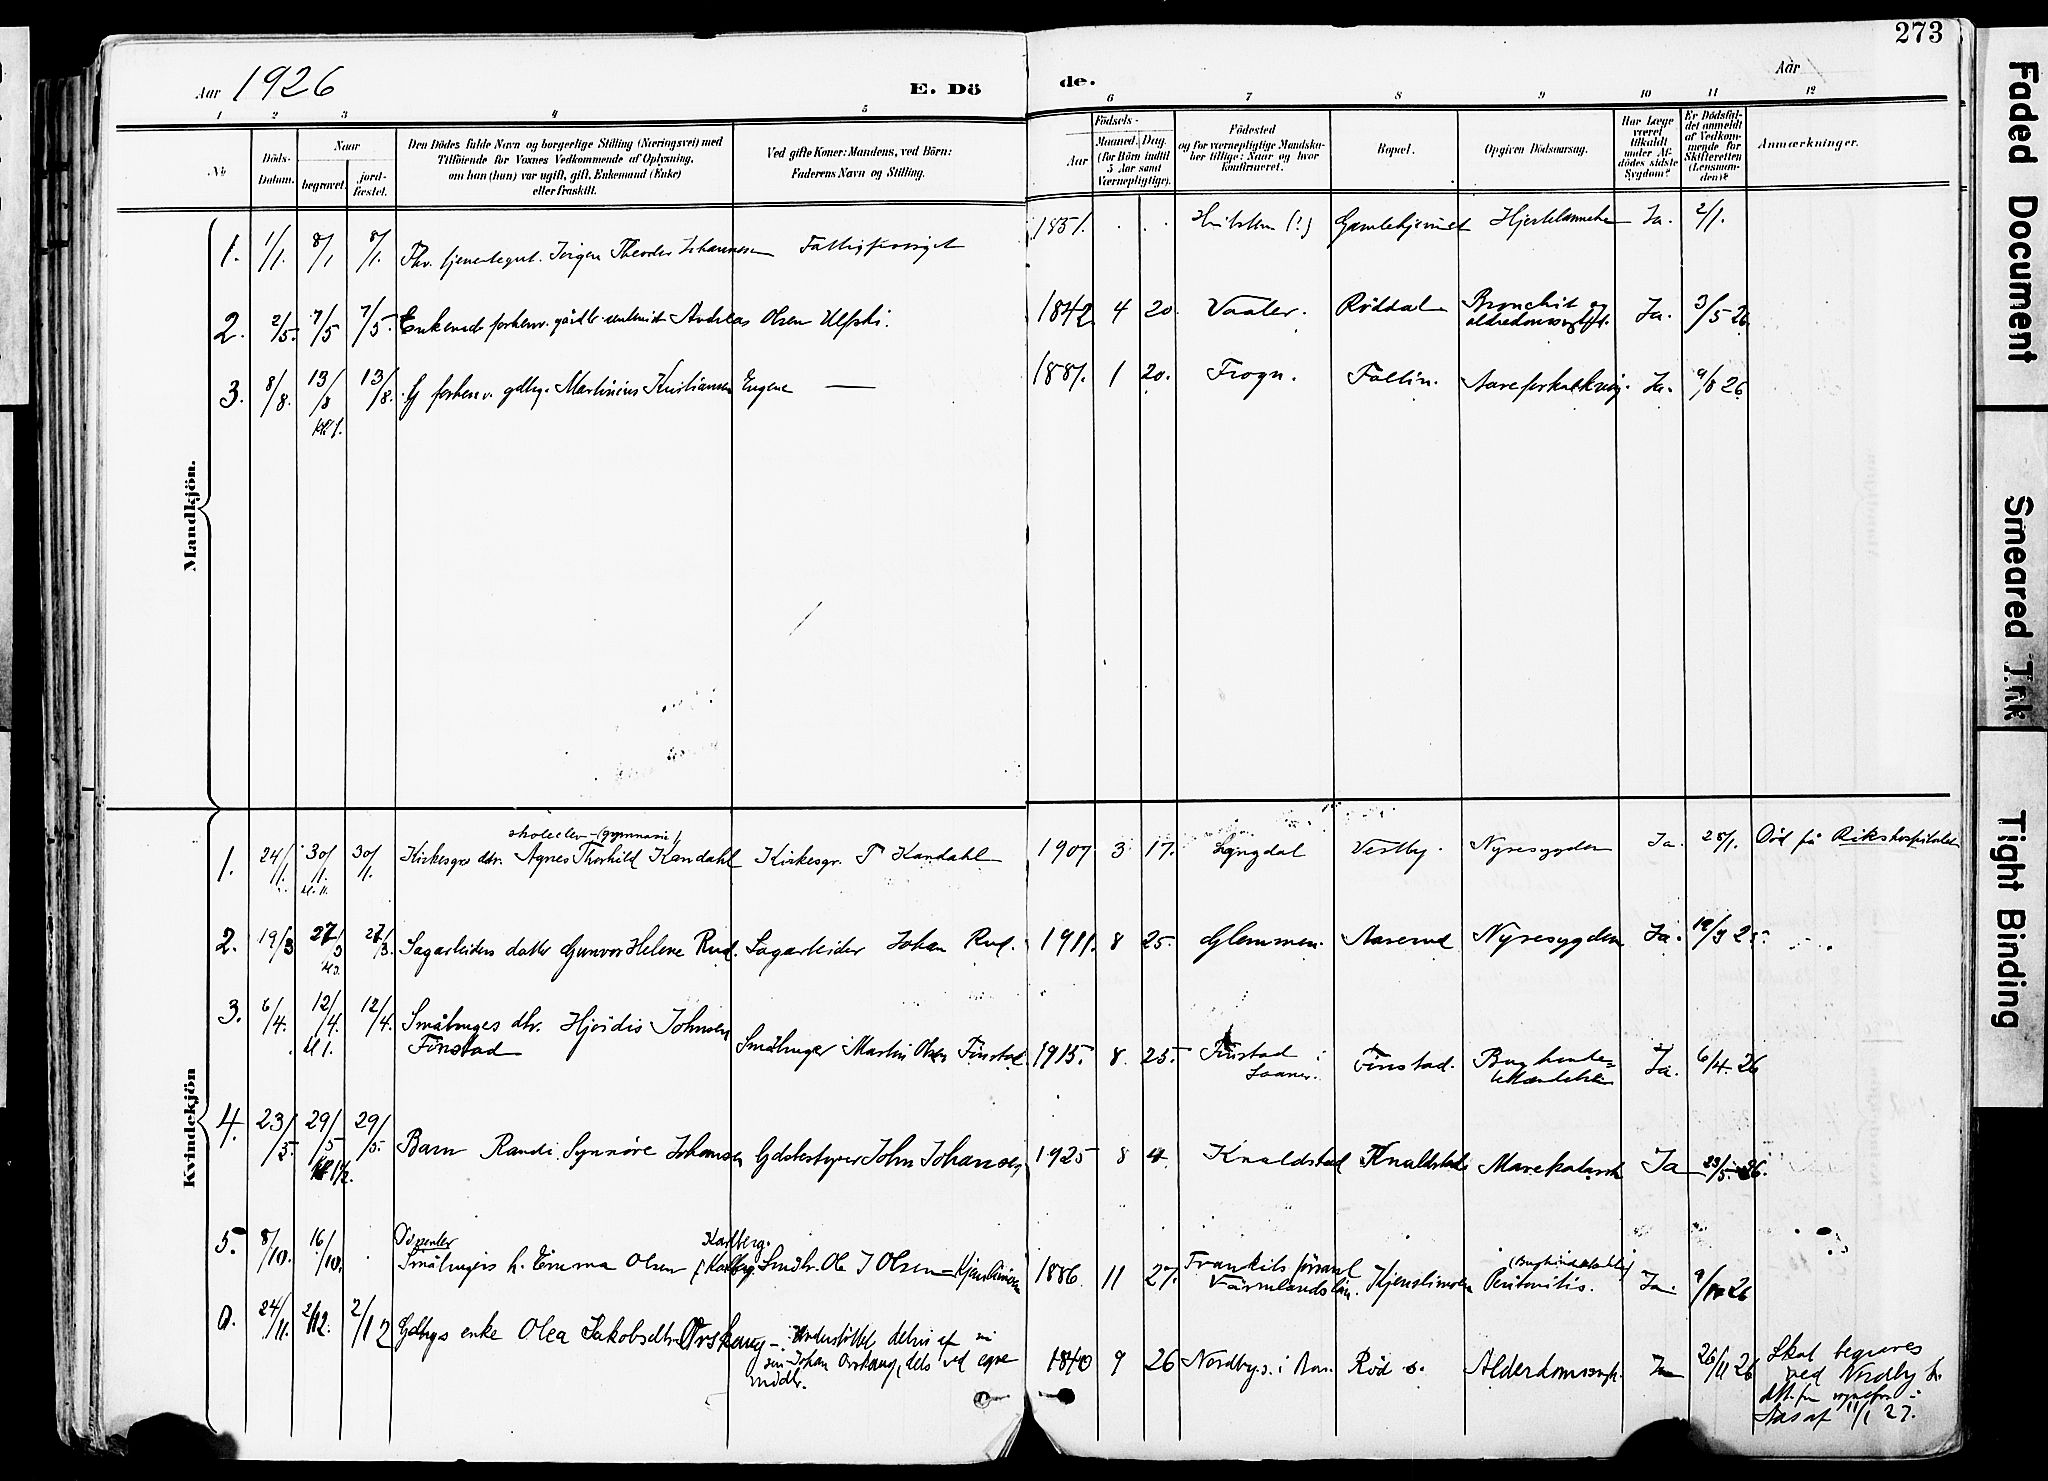 273
Aar 1926
E. Dö
de.
Aar
1 2 3 4 5 6 7 8 9 10 11 12
No
Döds-
Datum.
Naar
begravet.
jord-
fæstet.
Den Dödes fulde Navn og borgerlige Stilling (Næringsvei) med
Tilföiende for Voxnes Vedkommende af Oplysning,
om han (hun) var ugift, gift, Enkemand (Enke)
eller fraskilt.
Ved gifte Koner: Mandens, ved Börn:
Faderens Navn og Stilling.
Födsels-
Aar
Maaned.
Dag.
(for Börn indtil
5 Aar samt
Værnepligtige).
Födested
og for værnepligtige Mandska-
ber tillige: Naar og hvor
konfirmeret.
Bopæl.
Opgiven Dödsaarsag.
Har Læge
været
tilkaldt
under Af-
dödes sidste
Sygdom?
Er Dödsfal-
det anmeldt
af Vedkom-
mende for
Skifteretten
(Lensman-
den)?
Anmærkninger.
Mandkjön.
1. 1/1. 8/1 8/1. Jörgen Theodor Johannessen 1851. Gamlehjemmet Ja. 2/1.
2. 2/5. 7/5 7/5. Enkemd. forhenv. Andreas Olsen Ulfski. 1842 4 20. Vaaler. Röddal Bronchit og Ja. 3/5 26
3. 8/8. 13/8 13/8. G forhenv. gdbg. Martinius Kristiansen Engene — 1 20. Frogn. Follin. Aareforkalkning. Ja. 9/8 26
Kvindekjön
skoleelev (gymnasie)
1. 24/1. 30/1. 30/1. Kirkesgrs dtr. Agnes Thorhild Kandahl Kirkesgr. T Kandahl 1907 3 17. Lyngdal Vestby. Nyresygdom Ja. 25/1. Död på Rikshospitalet
2. 19/3 27/3 27/3. Sagarbeiders datter Gunvor Helene Rud. Sagarbeider Johan Rud. 1911. 8 25. Glemmen. Aaserud Nyresygdom Ja. 19/3 25.
3. 6/4. 12/4. 12/4. Småbrugers dtr. Hjördis Johnsen
Finstad Småbruger Martin Olsen Finstad. 1915. 8. 25. Finstad i
Finstad. Bughinde=
betændelse Ja. 6/4. 26
4. 23/5. 29/5 29/5. Barn Randi Synnöve Johansen Gdsbestyrer John Johansen 1925 8 4. Knaldstad Knaldstad Mavekatarrh Ja 23/5. 26.
5. 8/10. 16/10. Småbrugers h. Emma Olsen
Karlberg.
Smbr. Ole J Olsen 1886 11 27.
Värmlands län. Peritonitis. Ja. 9/10 26
24/11. 2/12. 2/12 Gdbrgs enke Olea Jakobsdtr. Orskaug – Understöttet delvis af
sön Johan Orskaug, dels ved egne
midler. 1840 9 26 Nordby s. i Aas. Röd s. Alderdomssvagh. Ja 26/11 26 Skal begraves
ved Nordby k.
Aas af 11/1 27.
Faded Document
Smeared Ink
Tight Binding